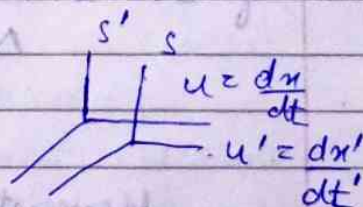 S' S
u = dx/dt
u' = dx'/dt'